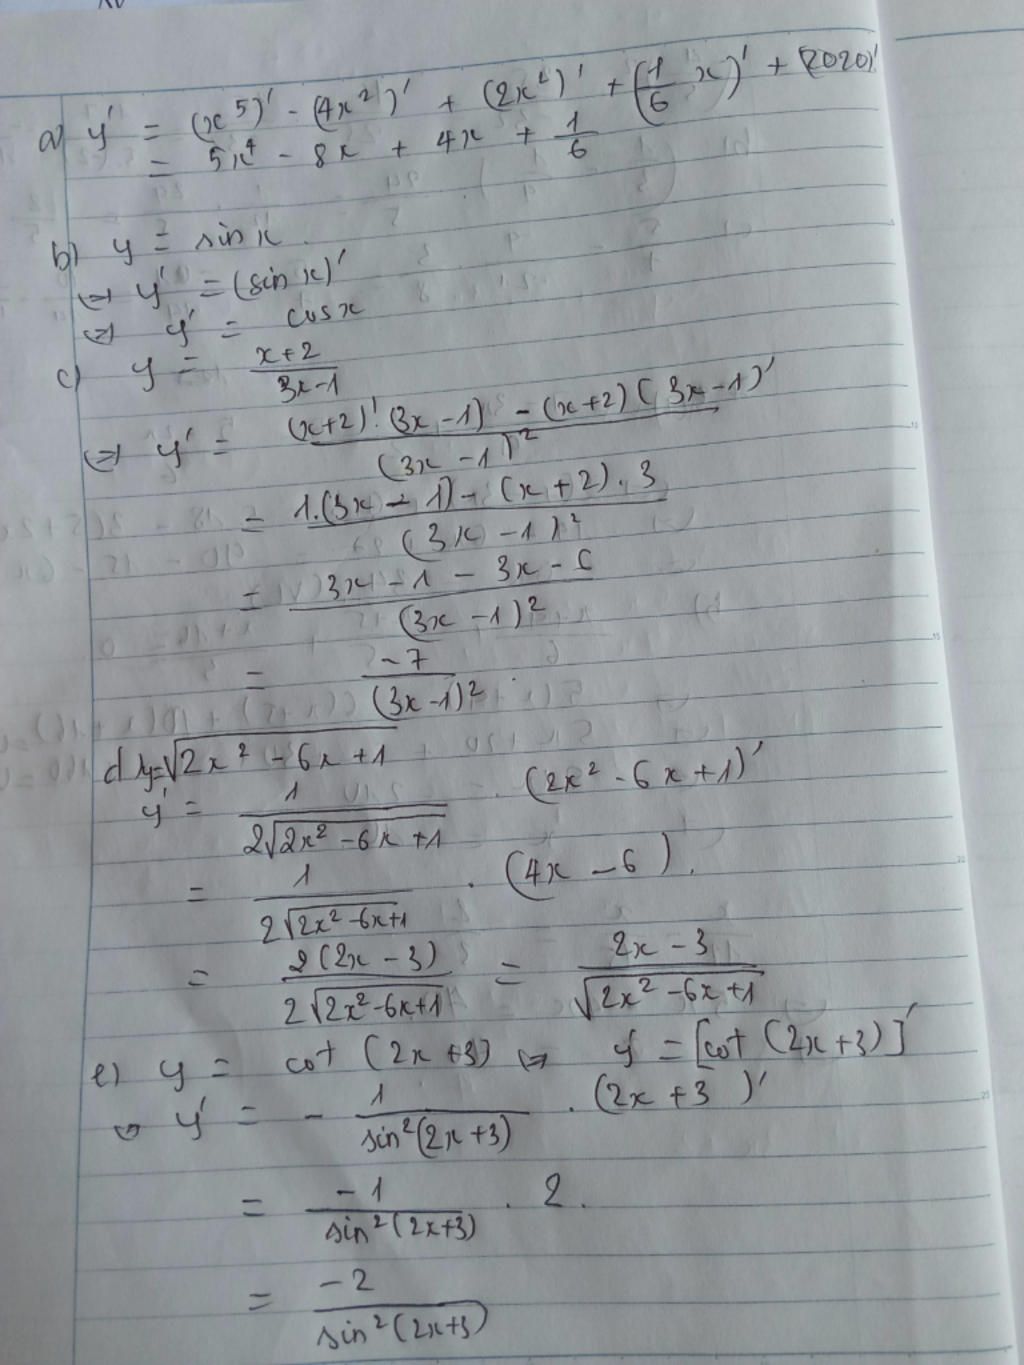 a) y' = (x⁵)' - (4x²)' + (2x²)' + (1/6 x)' + (2020)'
= 5x⁴ - 8x + 4x + 1/6
b) y = sin x
⇔ y' = (sin x)'
⇔ y' = cos x
c) y = (x+2)/(3x-1)
⇔ y' = ((x+2)'.(3x-1) - (x+2)(3x-1)')/(3x-1)²
= (1.(3x-1) - (x+2).3)/(3x-1)²
= (3x - 1 - 3x - 6)/(3x-1)²
= -7/(3x-1)²
d) y=√(2x² - 6x + 1)
y' = 1/(2√(2x² - 6x + 1)) . (2x² - 6x + 1)'
= 1/(2√(2x² - 6x + 1)) . (4x - 6).
= 2(2x - 3)/(2√(2x² - 6x + 1)) = (2x - 3)/√(2x² - 6x + 1)
e) y = cot (2x + 3) ⇔ y' = [cot (2x + 3)]'
⇔ y' = - 1/(sin²(2x+3)) . (2x + 3)'
= -1/(sin²(2x+3)) . 2.
= -2/(sin²(2x+3))